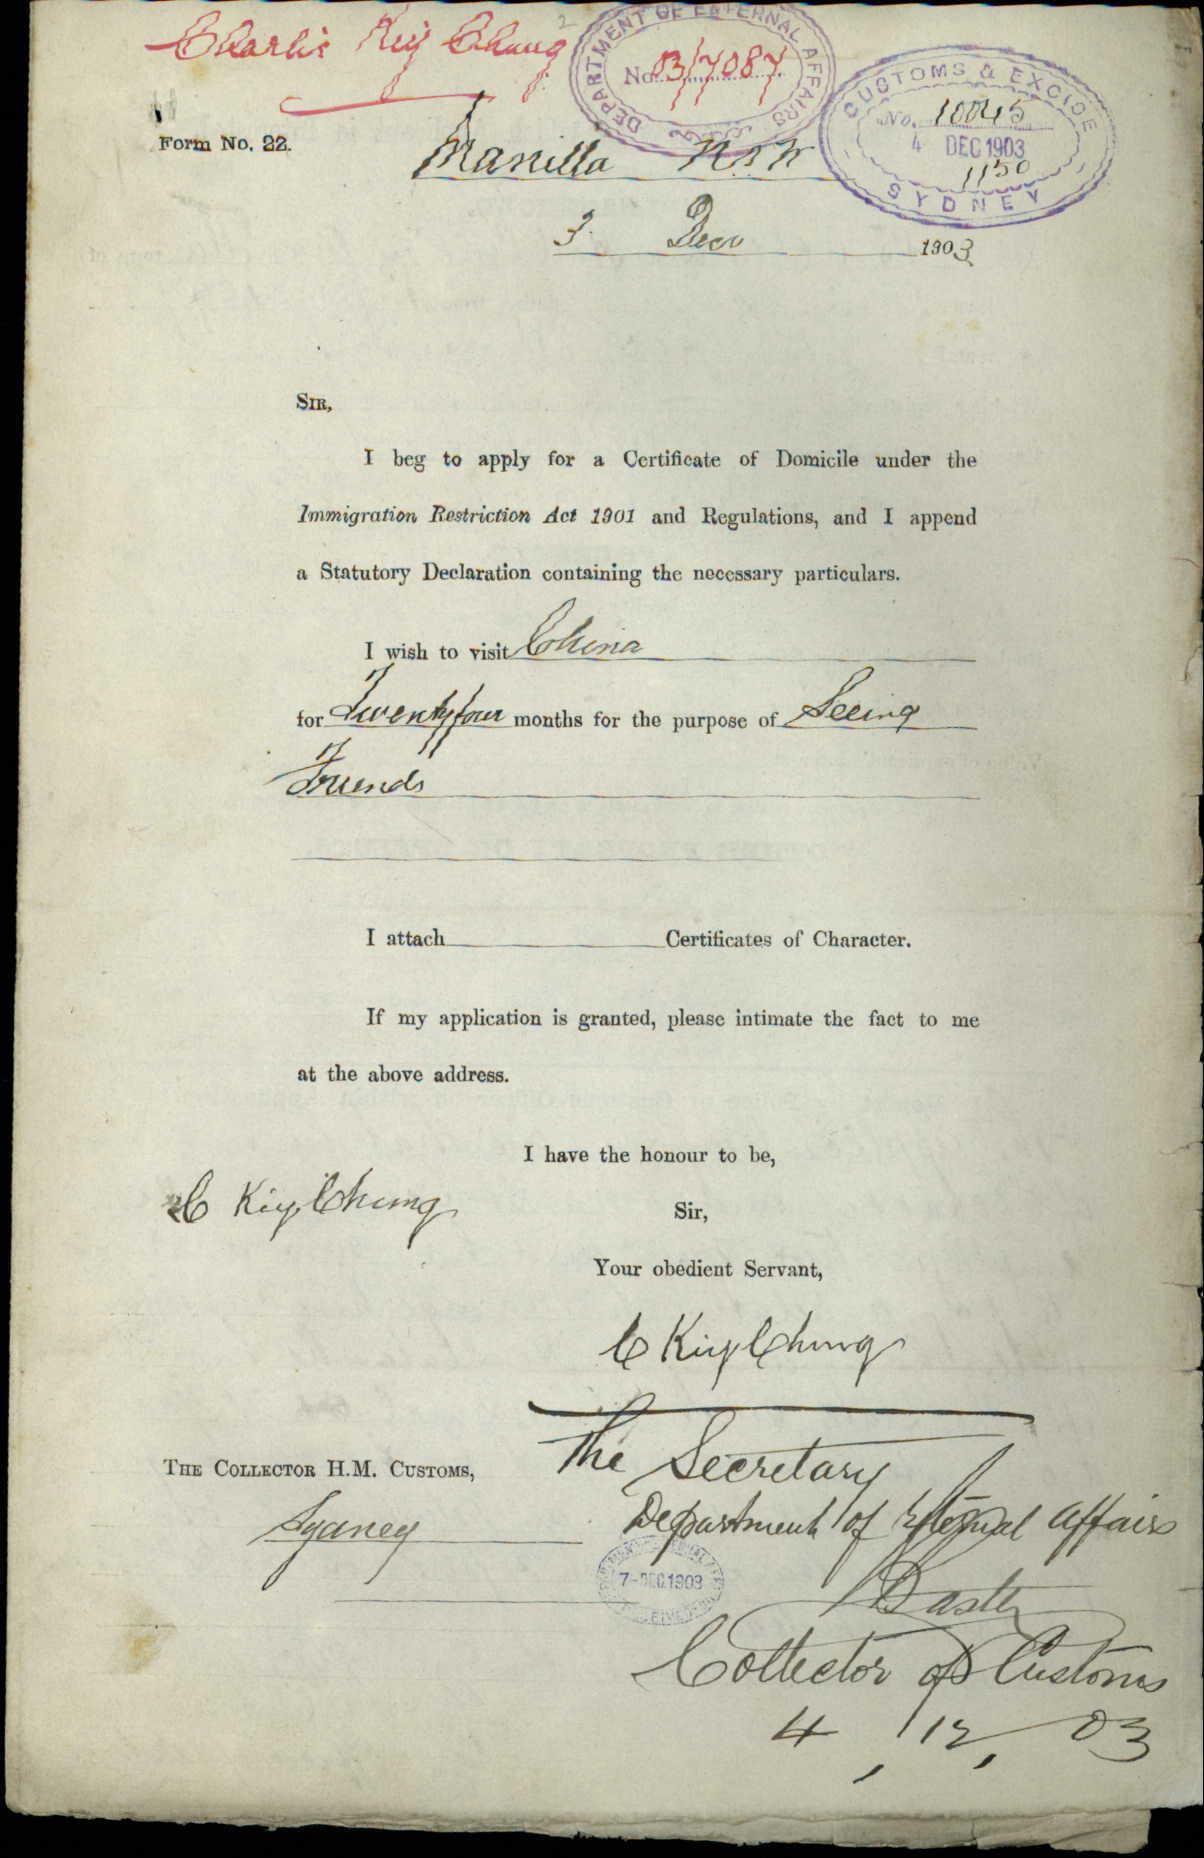 Charlie Key Chung
2
DEPARTMENT OF EXTERNAL AFFAIRS
No. 03/7087
CUSTOMS & EXCISE
No. 10045
4 DEC 1903
1150
SYDNEY
Form No. 22.
Manilla N.S.W
3 Decr 1903
SIR,
I beg to apply for a Certificate of Domicile under the
Immigration Restriction Act 1901 and Regulations, and I append
a Statutory Declaration containing the necessary particulars.
I wish to visit China
for Twentyfour months for the purpose of Seeing
Friends
I attach Certificates of Character.
If my application is granted, please intimate the fact to me
at the above address.
I have the honour to be,
C Key Chung
Sir,
Your obedient Servant,
C Key Chung
THE COLLECTOR H.M. CUSTOMS,
Sydney
The Secretary
Department of External Affairs
7-DEC.1903
Baxter
Collector of Customs
4, 12, 03